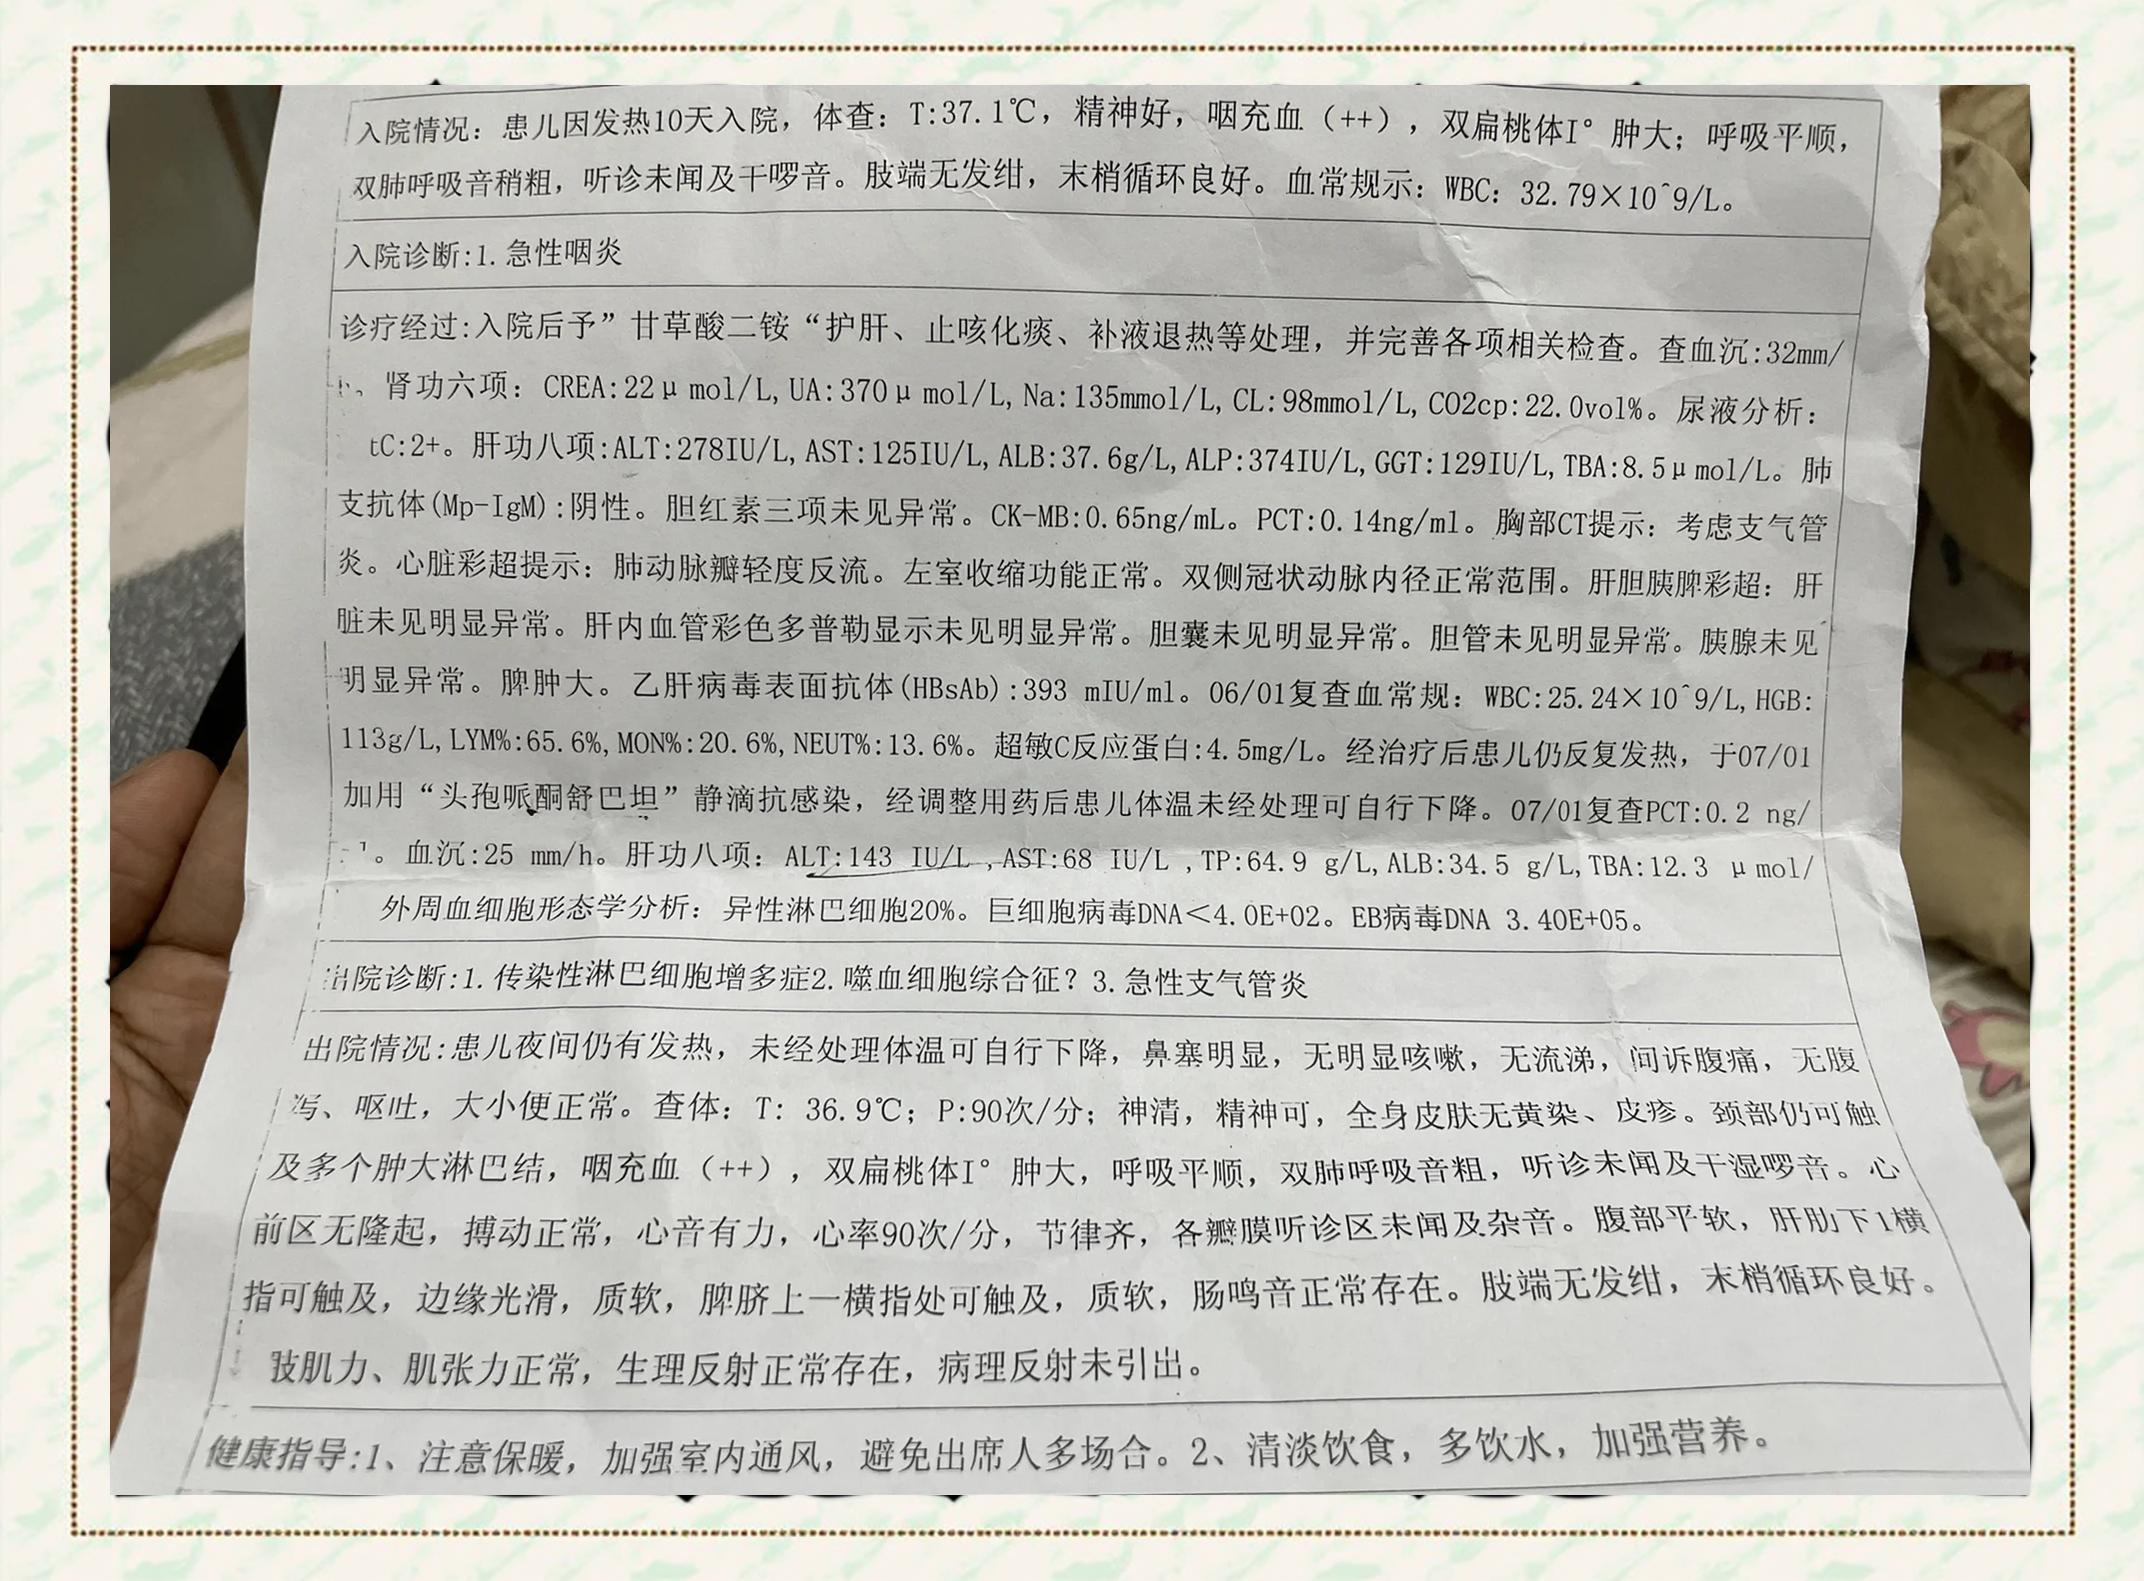 入院情况：患儿因发热10天入院，体查：T:37.1℃，精神好，咽充血（++），双扁桃体I°肿大；呼吸平顺，
双肺呼吸音稍粗，听诊未闻及干啰音。肢端无发绀，末梢循环良好。血常规示：WBC：32.79×10^9/L。
入院诊断:1.急性咽炎
诊疗经过:入院后予”甘草酸二铵“护肝、止咳化痰、补液退热等处理，并完善各项相关检查。查血沉:32mm/
、肾功六项：CREA:22μmol/L,UA:370μmol/L,Na:135mmol/L,CL:98mmol/L,CO2cp:22.0vol%。尿液分析：
tC:2+。肝功八项:ALT:278IU/L,AST:125IU/L,ALB:37.6g/L,ALP:374IU/L,GGT:129IU/L,TBA:8.5μmol/L。肺
支抗体(Mp-IgM):阴性。胆红素三项未见异常。CK-MB:0.65ng/mL。PCT:0.14ng/ml。胸部CT提示：考虑支气管
炎。心脏彩超提示：肺动脉瓣轻度反流。左室收缩功能正常。双侧冠状动脉内径正常范围。肝胆胰脾彩超：肝
脏未见明显异常。肝内血管彩色多普勒显示未见明显异常。胆囊未见明显异常。胆管未见明显异常。胰腺未见
明显异常。脾肿大。乙肝病毒表面抗体(HBsAb):393 mIU/ml。06/01复查血常规：WBC:25.24×10^9/L,HGB:
113g/L,LYM%:65.6%,MON%:20.6%,NEUT%:13.6%。超敏C反应蛋白:4.5mg/L。经治疗后患儿仍反复发热，于07/01
加用“头孢哌酮舒巴坦”静滴抗感染，经调整用药后患儿体温未经处理可自行下降。07/01复查PCT:0.2 ng/
。血沉:25 mm/h。肝功八项：ALT:143 IU/L ,AST:68 IU/L ,TP:64.9 g/L,ALB:34.5 g/L,TBA:12.3 μmol/
外周血细胞形态学分析：异性淋巴细胞20%。巨细胞病毒DNA＜4.0E+02。EB病毒DNA 3.40E+05。
出院诊断:1.传染性淋巴细胞增多症2.噬血细胞综合征？3.急性支气管炎
出院情况:患儿夜间仍有发热，未经处理体温可自行下降，鼻塞明显，无明显咳嗽，无流涕，间诉腹痛，无腹
泻、呕吐，大小便正常。查体：T: 36.9℃；P:90次/分；神清，精神可，全身皮肤无黄染、皮疹。颈部仍可触
及多个肿大淋巴结，咽充血（++），双扁桃体I°肿大，呼吸平顺，双肺呼吸音粗，听诊未闻及干湿啰音。心
前区无隆起，搏动正常，心音有力，心率90次/分，节律齐，各瓣膜听诊区未闻及杂音。腹部平软，肝肋下1横
指可触及，边缘光滑，质软，脾脐上一横指处可触及，质软，肠鸣音正常存在。肢端无发绀，末梢循环良好。
肢肌力、肌张力正常，生理反射正常存在，病理反射未引出。
健康指导:1、注意保暖，加强室内通风，避免出席人多场合。2、清淡饮食，多饮水，加强营养。